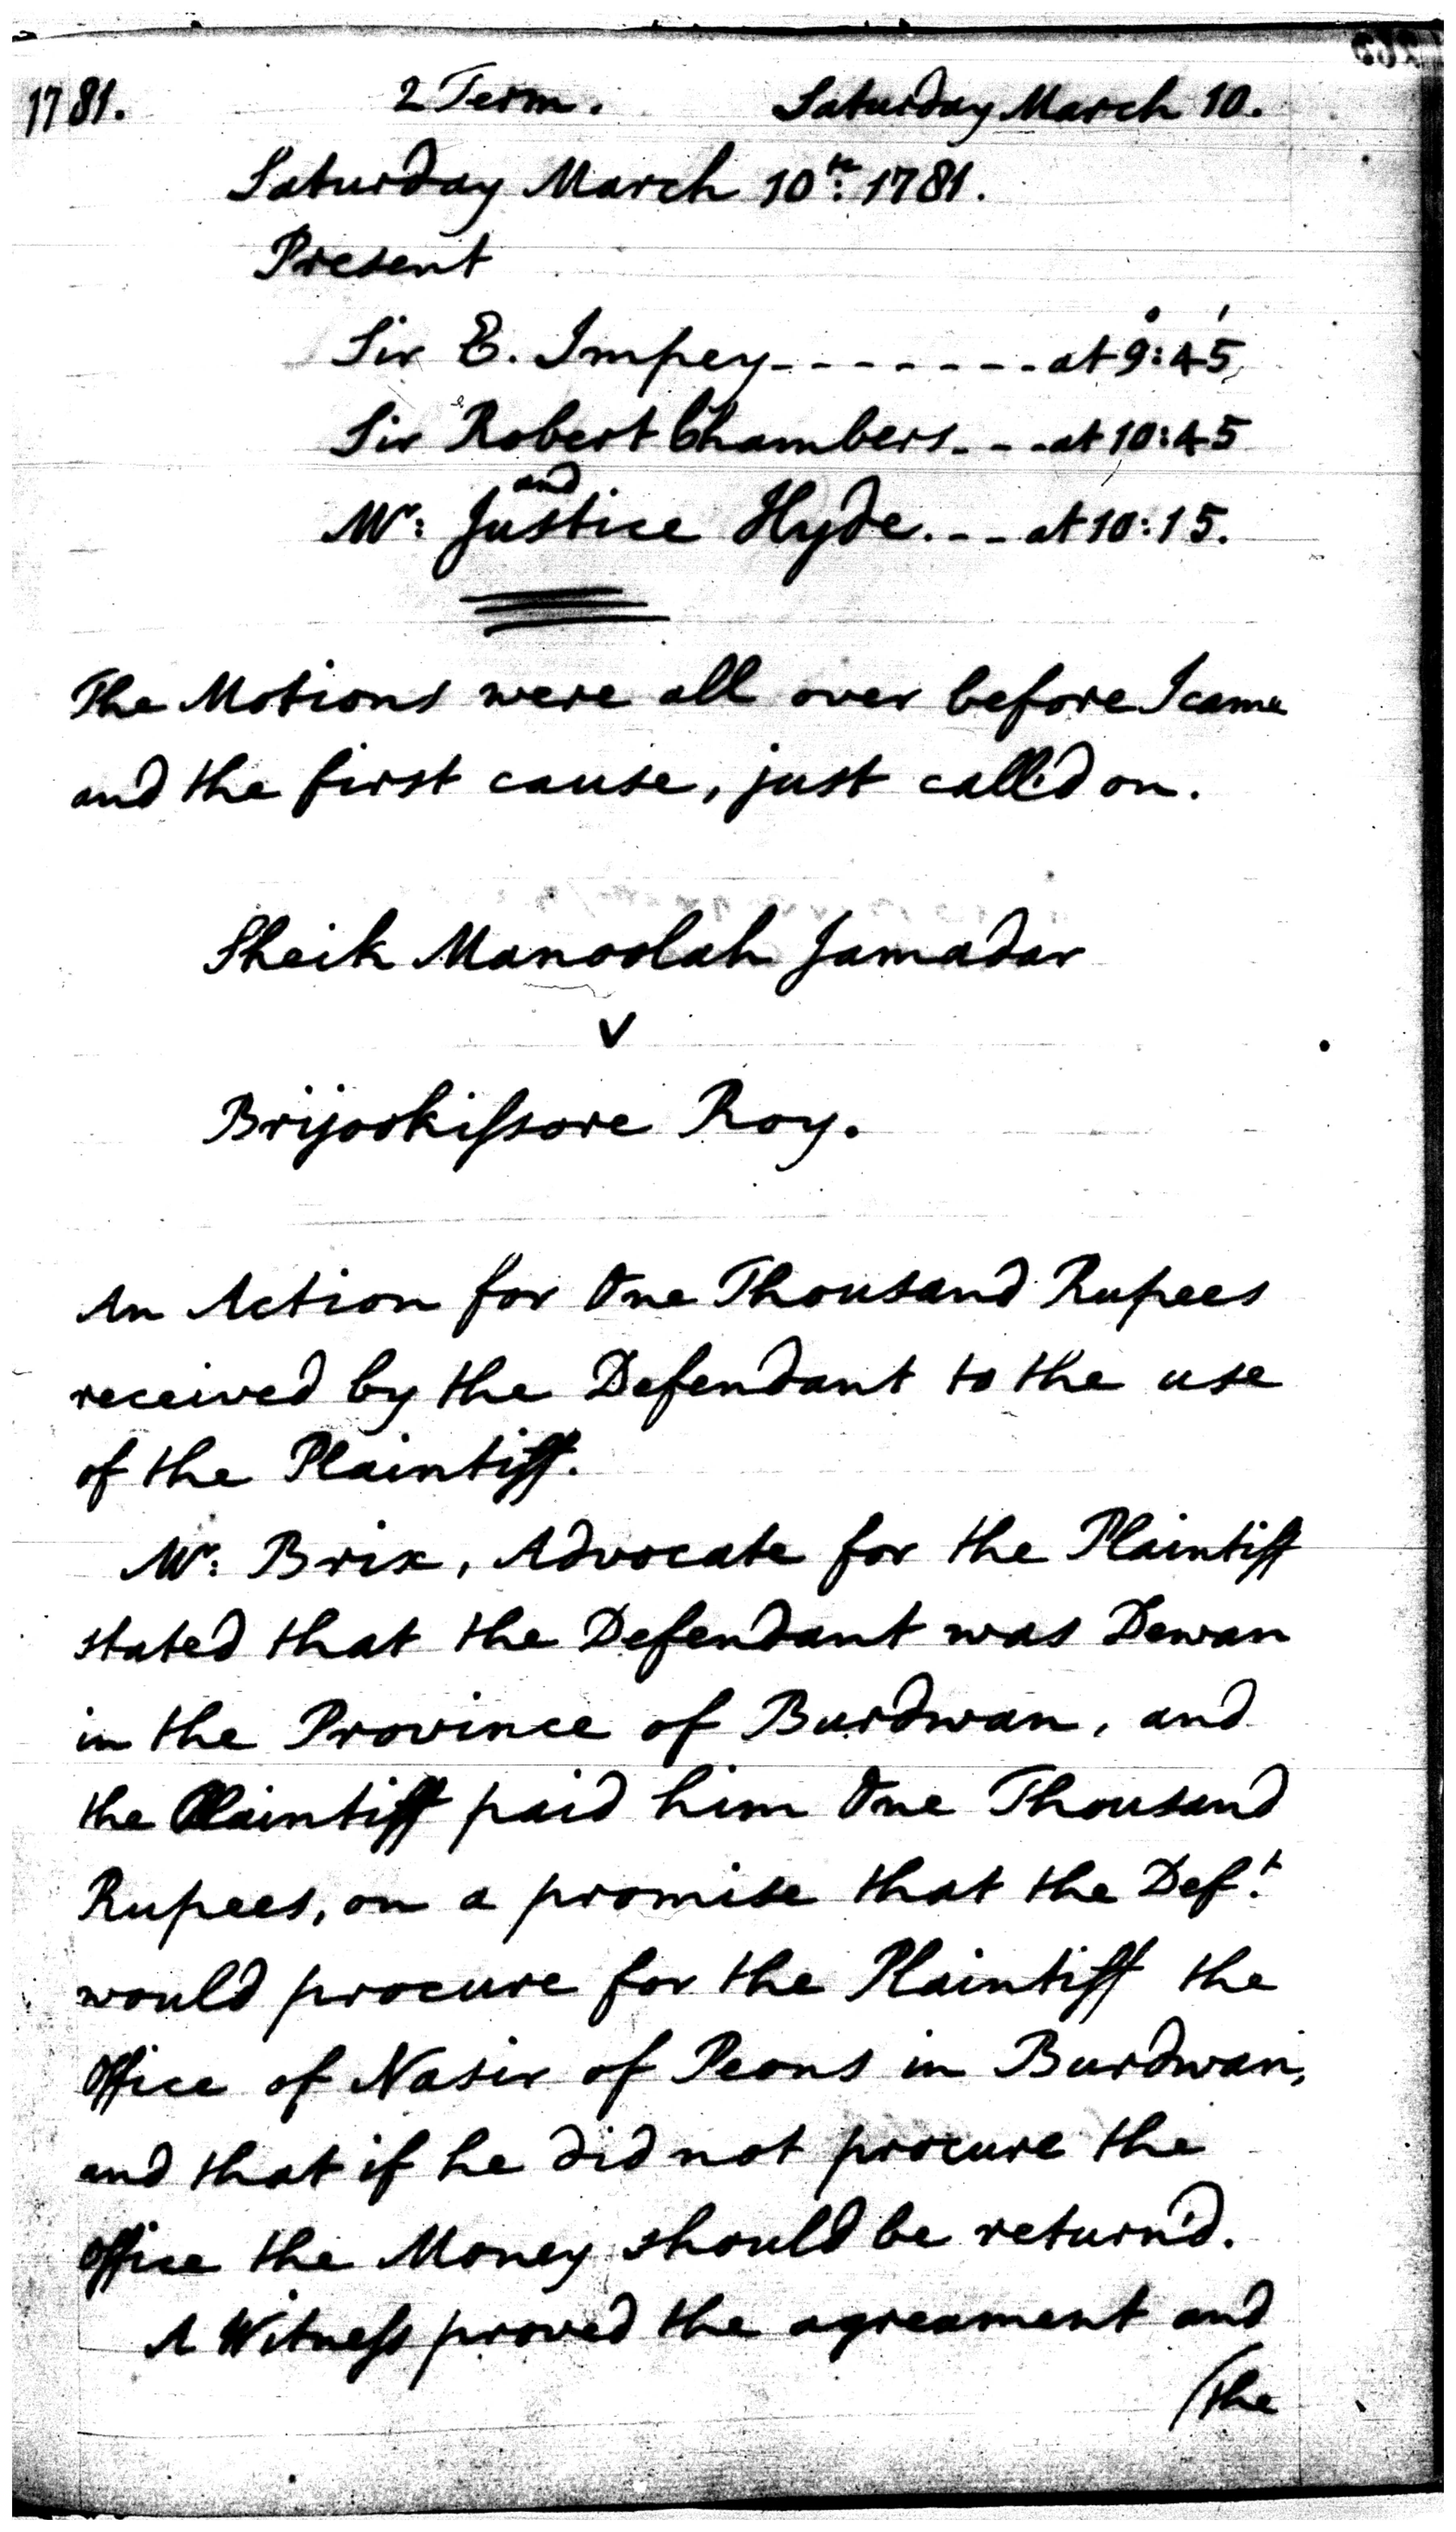 1781. 2 Term. Saturday March 10.
Saturday March 10th: 1781.
Present
Sir E. Impey - - - - - - - at 9°: 45'
Sir Robert Chambers - - - at 10:45
and
Mr: Justice Hyde. - - at 10:15.
The Motions were all over before I came
and the first cause, just call'd on.
Sheik Manoolah Jamadar
v
Brijookiſsore Roy.
An Action for One Thousand Rupees
received by the Defendant to the use
of the Plaintiff.
Mr: Brix, Advocate for the Plaintiff
stated that the Defendant was Dewan
in the Province of Burdwan, and
the Plaintiff paid him One Thousand
Rupees, on a promise that the Deft.
would procure for the Plaintiff the
office of Nasir of Peons in Burdwan,
and that if he did not procure the
office the Money should be return'd.
A Witneſs proved the agreament and
(the